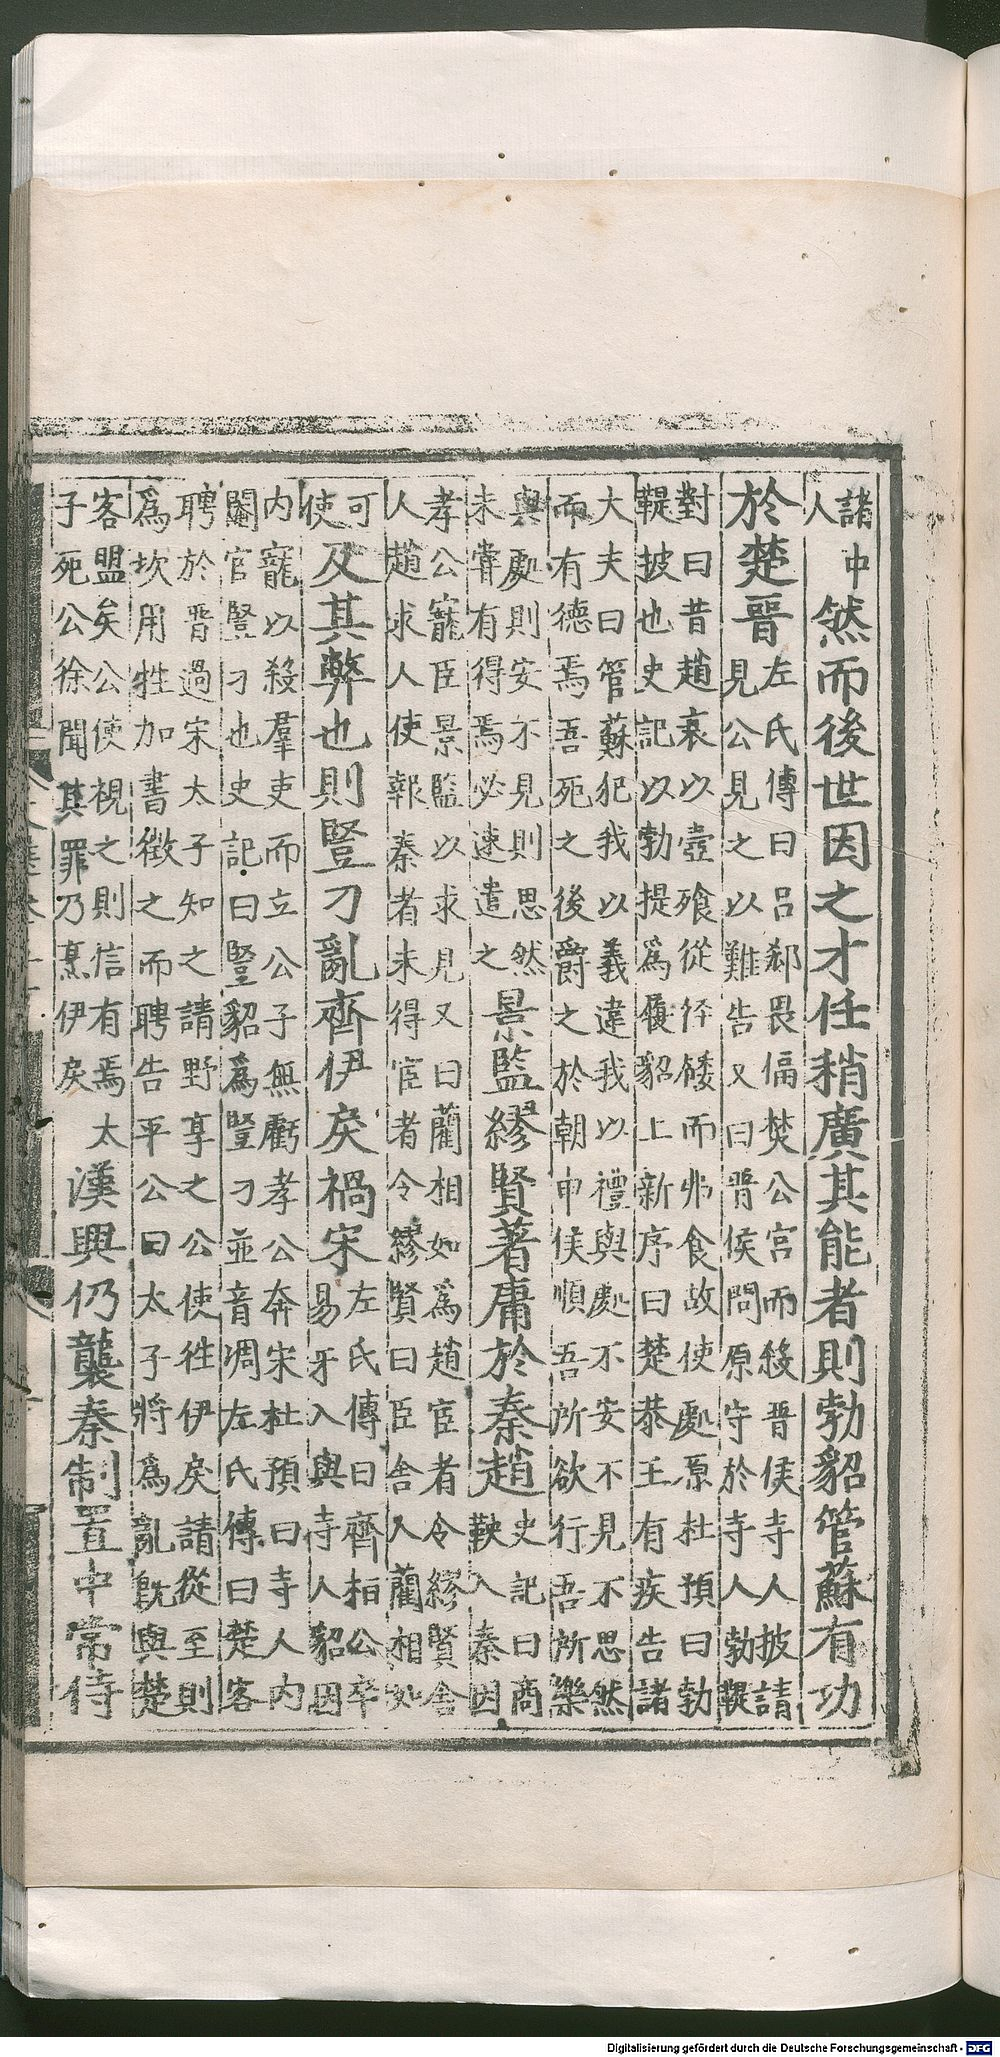 諸中
人
然而後世因之才任稍廣其能者則勃貂管蘇有功
於楚晉
左氏傳曰吕郤畏偪焚公宫而殺晉侯寺人披請
見公見之以難告又曰晉侯問原守於寺人勃鞮
對曰昔趙衰以壺飱從徑餧而弗食故使處原杜預曰勃
鞮披也史記以勃提爲履貂上新序曰楚恭王有疾告諸
大夫曰管蘇犯我以義違我以禮與處不安不見不思然
而有德焉吾死之後爵之於朝申侯順吾所欲行吾所樂
與處則安不見則思然
未甞有得焉必速遣之
景監繆賢著庸於秦趙
史記曰商
鞅入秦因
孝公寵臣景監以求見又曰藺相如爲趙宦者令繆賢舍
人趙求人使報秦者未得宦者令繆賢曰臣舍人藺相如
可
使
及其弊也則豎刁亂齊伊戾禍宋
左氏傳曰齊桓公卒
易牙入與寺人貂因
内寵以殺羣吏而立公子無虧孝公奔宋杜預曰寺人内
閹官豎刁也史記曰豎貂爲豎刁並音凋左氏傳曰楚客
聘於晉過宋太子知之請野享之公使徃伊戾請從至則
爲坎用牲加書徵之而聘告平公曰太子將爲亂旣與楚
客盟矣公使視之則信有焉太
子死公徐聞其罪乃烹伊戾
漢興仍襲秦制置中常侍
Digitalisierung gefördert durch die Deutsche Forschungsgemeinschaft - DFG